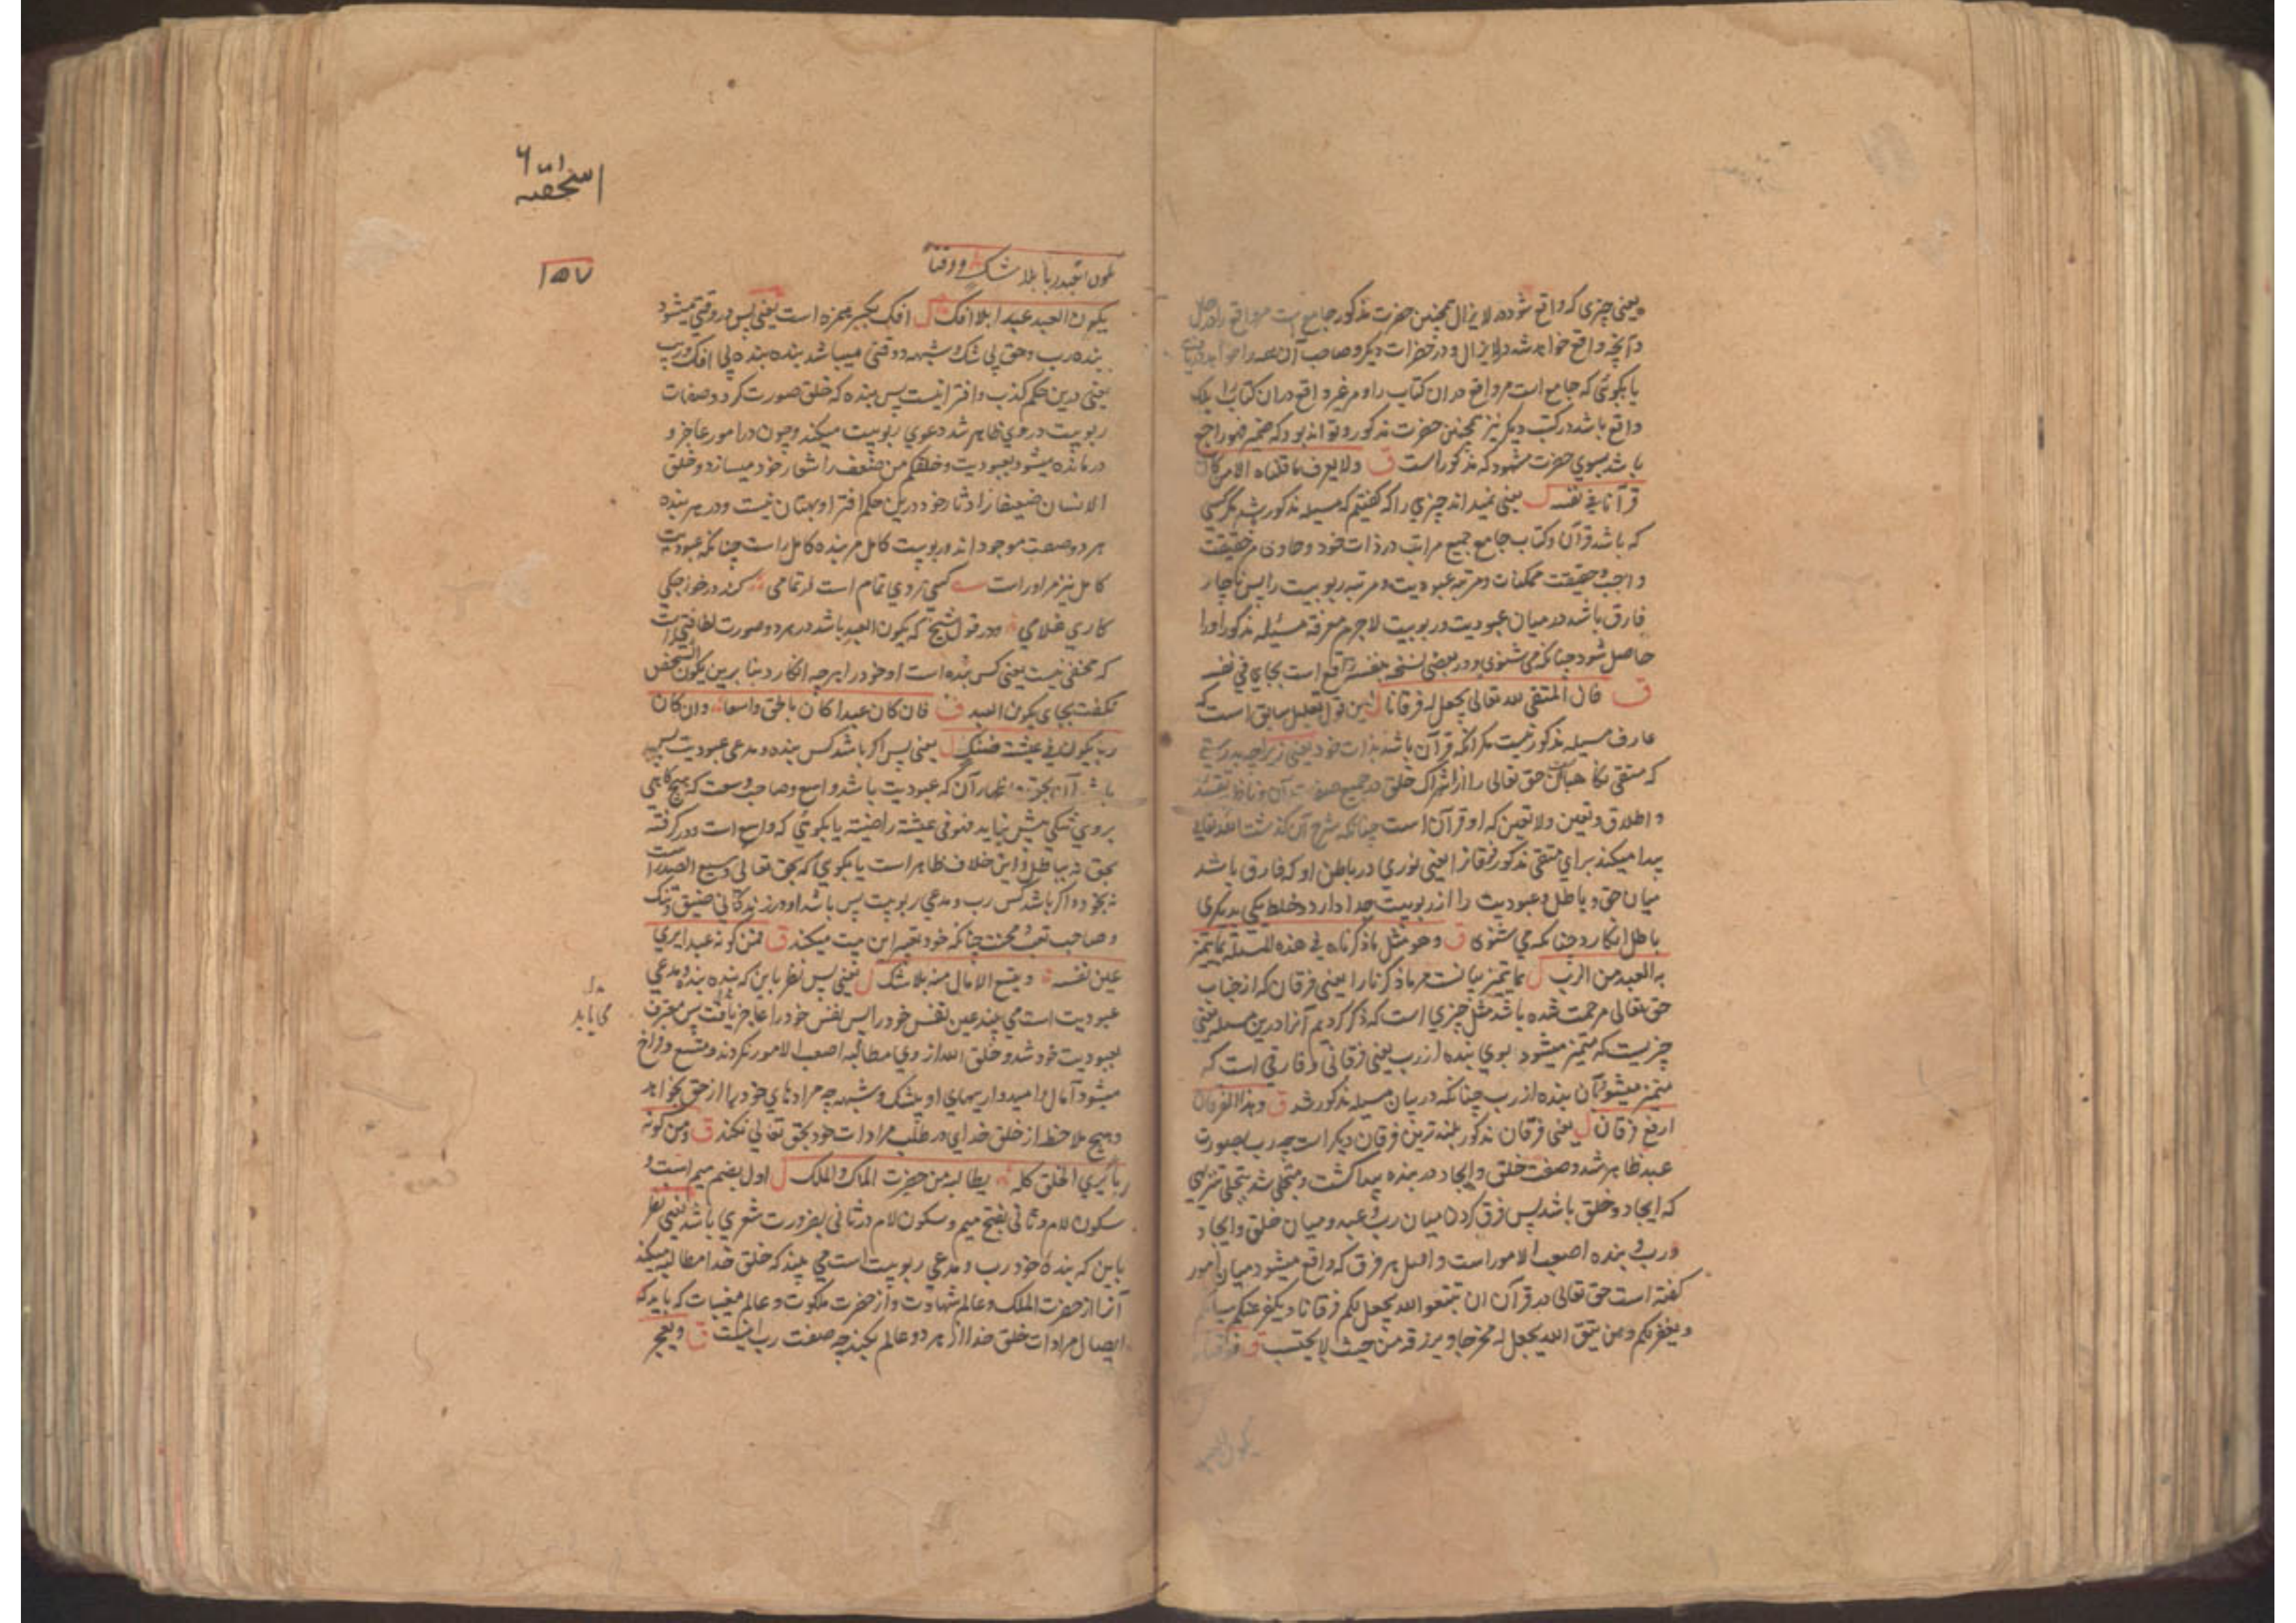 یعنی چیزی که واقع شود در لایزال همچنین حضرت مذکور جامع است مر واقع را در
وآنچه واقع خواهد شد در لایزال و در حضرات دیکر و صاحب آن
یا بکوئی که جامع است مر واقع در ان کتاب را و مر غیر واقع در ان کتاب را بلک
واقع باشد در کتب دیکر نیز همچنین حضرت مذکور و تواند بود که ضمیر هو راجع
باشد بسوی حضرت شهود که مذکور است ق ولا یعرف ما قلناه الا من کان
قرآنا فی نفسه ل یعنی نمیداند چیزی را که کفتیم که مسیله مذکور شد مکر کسی
که باشد قرآن و کتاب جامع جمیع مراتب در ذات خود و حاوی مر حقیقت
واجب و حقیقت ممکنات و مرتبه عبودیت و مرتبه ربوبیت را پس ناچار
فارق باشد در میان عبودیت و ربوبیت لاجرم معرفة مسئله مذکور او را
حاصل شود چنانکه می شنوی و در بعضی نسخه بنفسه واقع است بجای فی نفسه
ق فان المتقی لله تعالی یجعل له فرقانا ل این قول تعلیل سابق است که
عارف مسیله مذکور نیست مکر آنکه قرآن باشد بذات خود یعنی زیرا چه بدرستی
که متقی حق تعالی را از اشراک خلق در جمیع
و اطلاق و تعین و لا تعین که او قرآن است چنانکه شرح آن کذشت الله تعالی
پیدا میکند برای متقی مذکور فرقانا یعنی نوری در باطن او که فارق باشد
میان حق و باطل و عبودیت را از ربوبیت جدا دارد و خلط یکی بدیکری
باطل انکارد چنانکه می شنوی ق وهو مثل ما ذکرناه فی هذه المسئلة بما یتمیز
به العبد من الرب ل بما یتمیز بیانست مر ما ذکرنا را یعنی فرقان که از جناب
حق تعالی مرحمت شده باشد مثل چیزی است که ذکر کردیم آنرا درین مسیله یعنی
چیزیست که متمیز میشود بوی بنده از رب یعنی فرقانی و فارقی است که
متمیز میشود بآن بنده از رب چنانکه در بیان مسیله مذکور شد ق وهذا الفرقان
ارفع فرقان ل یعنی فرقان مذکور بلند ترین فرقان دیکر است چه رب بصورت
عبد ظاهر شد و صفت خلق و ایجاد در بنده پیدا کشت و متجلی شد بتجلی تنزیهی
که ایجاد و خلق باشد پس فرق کردن میان رب و عبد و میان خلق و ایجاد
و رب و بنده اصعب الامور است و اصل هر فرق که واقع میشود میان امور
کفته است حق تعالی در قرآن ان تتقوا الله یجعل لکم فرقانا ویکفر عنکم سیاتکم
ویغفر لکم ومن یتق الله یجعل له مخرجا ویرزقه من حیث لا یحتسب ق فوقتا
یکون العبد
۱۵۷
یکون العبد ربا بلا شک ووقتا
یکون العبد عبدا بلا افک ل افک بکسر همزه است یعنی پس در وقتی میشود
بنده رب و حق بی شک و شبهه و وقتی میباشد بنده بنده بی افک و ریب
یعنی درین حکم کذب و افترا نیست پس بنده که خلق صورت کرد و صفات
ربوبیت در وی ظاهر شد دعوی ربوبیت میکند و چون در امور عاجز و
درمانده میشود بعبودیت و خلقکم من ضعف را شعار خود میسازد و خلق
الانسان ضعیفا را دثار خود درین حکم افترا و بهتان نیست و در هر بنده
هر دو صفت موجود اند و ربوبیت کامل مر بنده کامل راست چنانکه عبودیت
کامل نیز مر او راست کسی مردی تمام است از تمامی کند در خواجکی
کاری غلامی و در قول شیخ که یکون العبد باشد در هر دو صورت لطافتی است
که مخفی نیست یعنی کس بنده است او خود را هر چه انکارد بنا برین یکون الشخص
نکفت بجای یکون العبد ق فان کان عبدا کان بالحق واسعا وان کان
ربا یکون فی عیشة ضنک ل یعنی پس اکر باشد کس بنده و مدعی عبودیت پس
باشد آن که عبودیت باشد واسع و صاحب وسعت که هیچ کاهی
بروی تنکی پیش نیاید فهو فی عیشة راضیة یا بکوئی که واسع است و در کرفته
بحق نه بباطل و این خلاف ظاهر است یا بکوئی که بحق تعالی وسیع الصدر است
نه بخود و اکر باشد کس رب و مدعی ربوبیت پس باشد او در زندکانی ضیق و تنک
و صاحب تعب و محنت چنانکه خود تفسیر این بیت میکند ق فمن کونه عبدا یری
عین نفسه ویتسع الامال منه بلا شک ل یعنی پس نظر باین که بنده بنده و مدعی
عبودیت است می بیند عین نفس خود را پس نفس خود را عاجز یافت پس معترف
بعبودیت خود شد و خلق الله از وی مطالبه اصعب الامور نکردند و متسع و فراخ
میشود آمال و امیدواریهای او بیشک و شبهه چه مرادهای خود را از حق بخواهد
و هیچ ملاحظه از خلق خدای در طلب مرادات خود بحق تعالی نکند ق ومن کونه
ربا یری الخلق کله یطالبه من حضرت الملک والملک ل اول بضم میم است و
سکون لام و ثانی بفتح میم و سکون لام در ثانی بضرورت شعری باشد یعنی نظر
باین که بنده خود رب و مدعی ربوبیت است می بیند که خلق خدا مطالبه میکند
آنرا از حضرت الملک و عالم شهادت و از حضرت ملکوت و عالم مغیبات که باید که
ایصال مرادات خلق خدا از هر دو عالم بکند چه صفت رب اینست ق ویعجز
می یابد